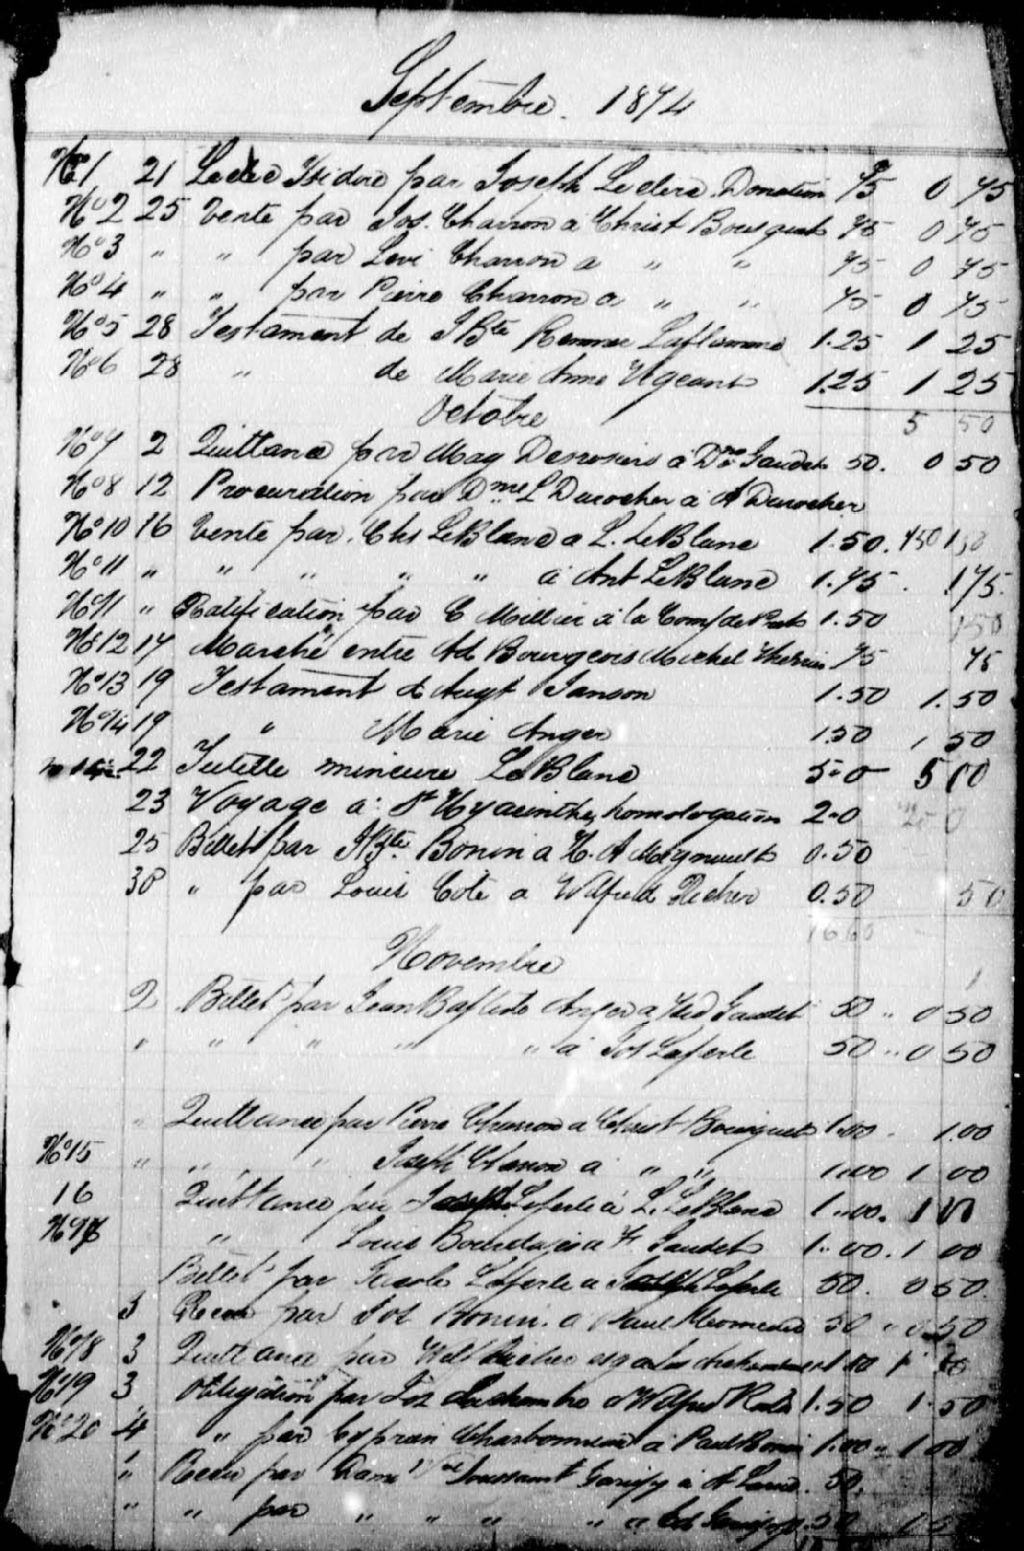 Septembre. 1874
No 1 21 Leclerc Isidore par Joseph Leclerc Donation 75 0 75
No 2 25 Vente par Jos. Charron a Christ Bousquet 75 0 75
No 3 " " par Levi Charron a " " 75 0 75
No 4 " " par Pierre Charron a " " 75 0 75
No 5 28 Testament de J Bte Laflamme 1.25 1 25
No 6 28 " de Marie Anne Ugeant 1.25 1 25
Octobre 5 50
No 7 2 Quittance par Mag Desrosiers a Dme Gaudet 50. 0 50
No 8 12 Procuration par Dme L Durocher a A Durocher
No 10 16 Vente par. Chs LeBlanc a L. LeBlanc 1.50.
No 11 " " " " " a Ant LeBlanc 1.75. 175.
No 11 " Ratification par C Millier a la 1.50 1 50
No 12 17 Marché entre Ad Bourgeois Michel 75 75
No 13 19 Testament d Augt Janson 1.50 1.50
No 14 19 " Marie Anger 150 1 50
22 Tutelle mineure LeBlanc 5.0 5 00
23 Voyage a St Hyacinthe, homologation 2.0
25 Billet par J Bte Bonin a H. A Maynault 0.50
30 " par Louis Coté a Wilfrid Richer 0.50 50
1660
Novembre
2 Billet par Jean Baptiste Anger a Gaudet 50 " 0 50
" " " " " a Jos Laferle 50 " 0 50
" Quittance par Pierre Charron a Christ Bousquet 1.00 . 1.00
No 15 " " " Joseph Charron a " " 1.00 1 00
16 Quittance par Joseph Laferle a L. LeBlanc 1.00. 1 00
No 17 " Louis Bourdages a Gaudet 1.00. 1 00
Billet par Laferle a Joseph Laferle 50. 0 50.
3 Recu par Jos Bonin. a Paul 50 " 0.50
No 18 3 Quittance par
No 19 3 Obligation par Jos Lachambre a Wilfred 1.50 1.50
No 20 4 " par Cyprien Charbonneau a Paul Bonin 1.00 " 1 00
" Recu par Dame Toussaint a A 50.
" " par " " " " a 50